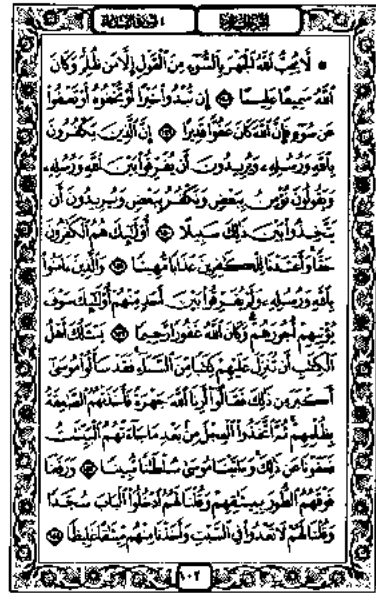 الجزء السادس سورة النساء
۞ لَّا يُحِبُّ ٱللَّهُ ٱلۡجَهۡرَ بِٱلسُّوٓءِ مِنَ ٱلۡقَوۡلِ إِلَّا مَن ظُلِمَۚ وَكَانَ
ٱللَّهُ سَمِيعًا عَلِيمًا ١٤٨ إِن تُبۡدُواْ خَيۡرًا أَوۡ تُخۡفُوهُ أَوۡ تَعۡفُواْ
عَن سُوٓءٖ فَإِنَّ ٱللَّهَ كَانَ عَفُوّٗا قَدِيرًا ١٤٩ إِنَّ ٱلَّذِينَ يَكۡفُرُونَ
بِٱللَّهِ وَرُسُلِهِۦ وَيُرِيدُونَ أَن يُفَرِّقُواْ بَيۡنَ ٱللَّهِ وَرُسُلِهِۦ
وَيَقُولُونَ نُؤۡمِنُ بِبَعۡضٖ وَنَكۡفُرُ بِبَعۡضٖ وَيُرِيدُونَ أَن
يَتَّخِذُواْ بَيۡنَ ذَٰلِكَ سَبِيلًا ١٥٠ أُوْلَٰٓئِكَ هُمُ ٱلۡكَٰفِرُونَ
حَقّٗاۚ وَأَعۡتَدۡنَا لِلۡكَٰفِرِينَ عَذَابٗا مُّهِينٗا ١٥١ وَٱلَّذِينَ ءَامَنُواْ
بِٱللَّهِ وَرُسُلِهِۦ وَلَمۡ يُفَرِّقُواْ بَيۡنَ أَحَدٖ مِّنۡهُمۡ أُوْلَٰٓئِكَ سَوۡفَ
يُؤۡتِيهِمۡ أُجُورَهُمۡۚ وَكَانَ ٱللَّهُ غَفُورٗا رَّحِيمٗا ١٥٢ يَسۡـَٔلُكَ أَهۡلُ
ٱلۡكِتَٰبِ أَن تُنَزِّلَ عَلَيۡهِمۡ كِتَٰبٗا مِّنَ ٱلسَّمَآءِۚ فَقَدۡ سَأَلُواْ مُوسَىٰٓ
أَكۡبَرَ مِن ذَٰلِكَ فَقَالُوٓاْ أَرِنَا ٱللَّهَ جَهۡرَةٗ فَأَخَذَتۡهُمُ ٱلصَّٰعِقَةُ
بِظُلۡمِهِمۡۚ ثُمَّ ٱتَّخَذُواْ ٱلۡعِجۡلَ مِنۢ بَعۡدِ مَا جَآءَتۡهُمُ ٱلۡبَيِّنَٰتُ
فَعَفَوۡنَا عَن ذَٰلِكَۚ وَءَاتَيۡنَا مُوسَىٰ سُلۡطَٰنٗا مُّبِينٗا ١٥٣ وَرَفَعۡنَا
فَوۡقَهُمُ ٱلطُّورَ بِمِيثَٰقِهِمۡ وَقُلۡنَا لَهُمُ ٱدۡخُلُواْ ٱلۡبَابَ سُجَّدٗا
وَقُلۡنَا لَهُمۡ لَا تَعۡدُواْ فِي ٱلسَّبۡتِ وَأَخَذۡنَا مِنۡهُم مِّيثَٰقًا غَلِيظٗا ١٥٤
١٠٢